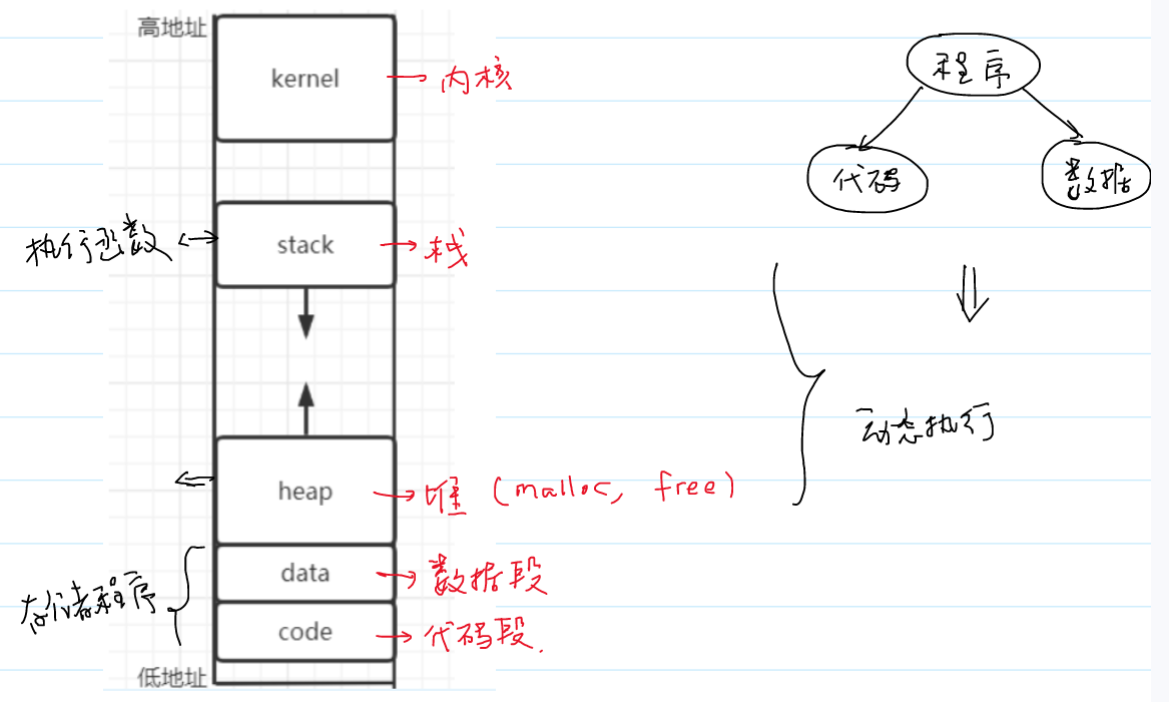 高地址
kernel
内核
执行函数
stack
栈
heap
堆 (malloc, free)
存储程序
data
数据段
code
代码段.
低地址
程序
代码
数据
动态执行